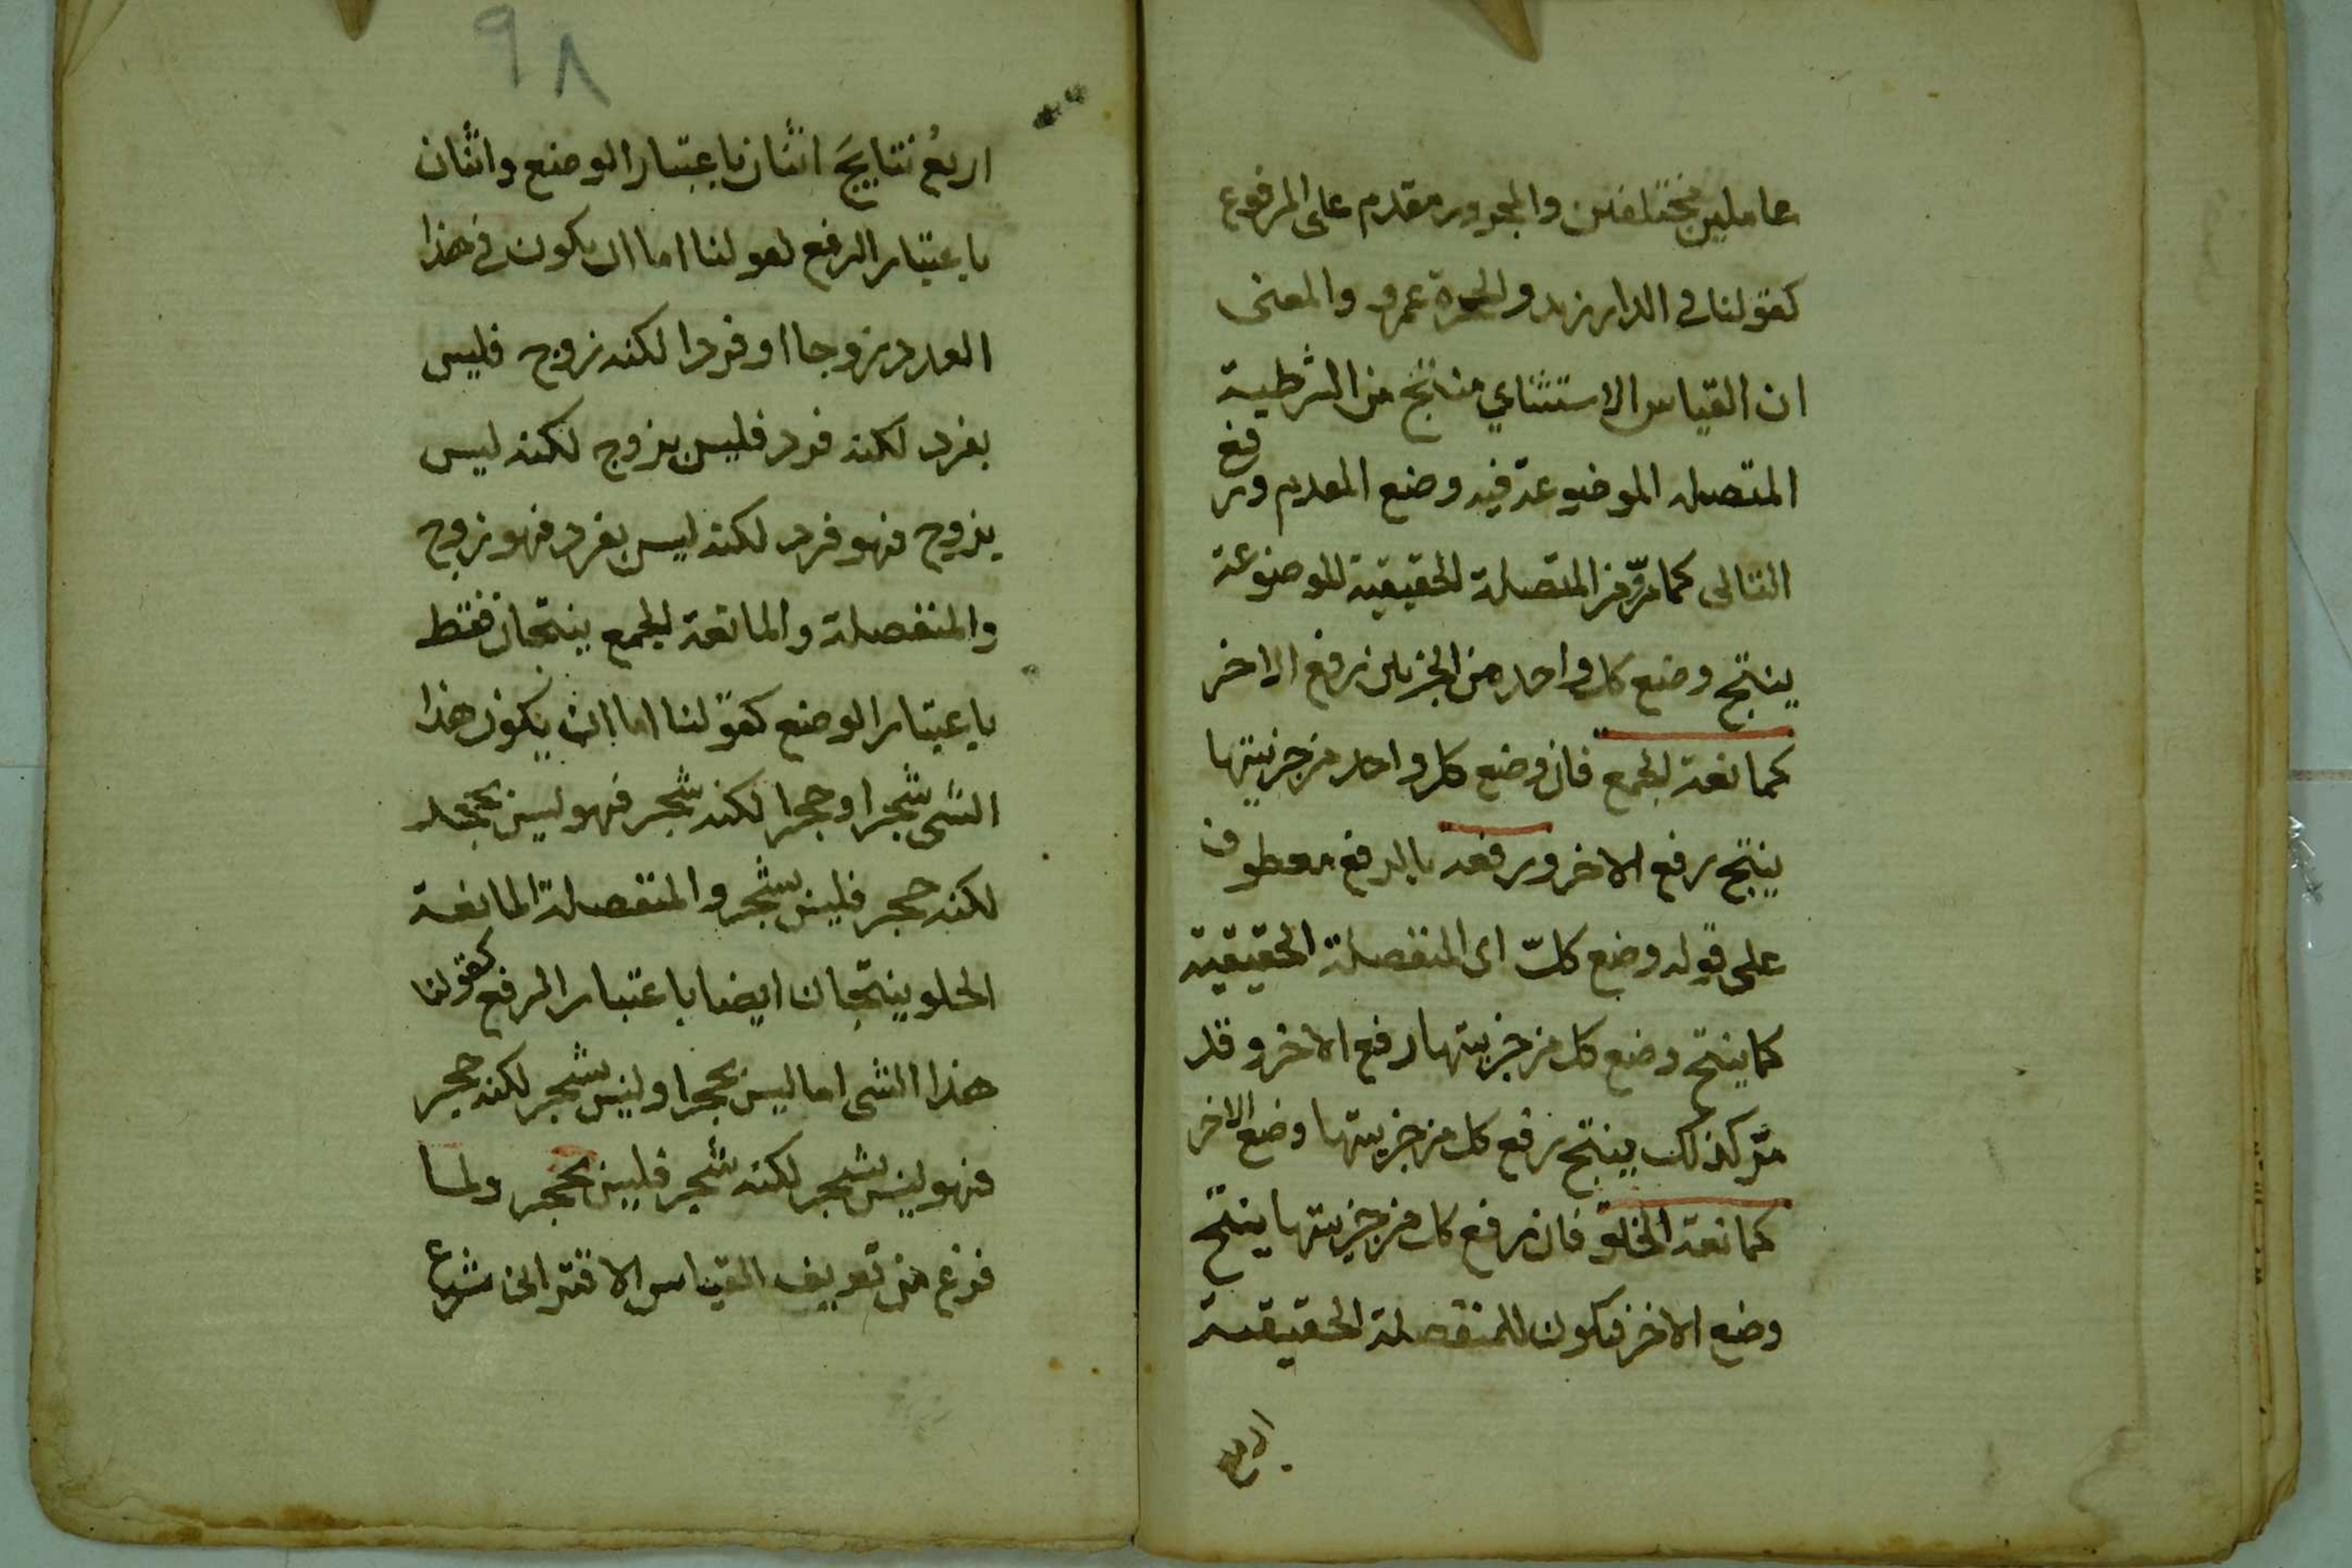 عاملين مختلفين والمجرور مقدم على المرفوع
كقولنا في الدار زيد والحجرة عمرو والمعنى
ان القياس الاستثناي منتج من الشرطية
المتصلة الموضوعة فيه وضع المقدم ورفع
التالى كما مرّ من المتصلة الحقيقية الموضوعة
ينتج وضع كل واحد من الجزئين رفع الاخر
كمانعة الجمع فان وضع كل واحد من جزئيتها
ينتج رفع الاخر ورفعه بالرفع معطوف
على قوله وضع كلّ اى المنفصلة الحقيقية
كما ينتج وضع كل من جزيتها رفع الاخر وقد
مرّ كذلك ينتج رفع كل من جزيتها وضع الاخر
كمانعة الخلو فان رفع كل من جزيتها ينتج
وضع الاخر فيكون للمنفصلة الحقيقية
اربع
٩٨
اربعُ نتايجَ اثنان باعتبار الوضع واثنان
باعتبار الرفع لقولنا اما ان يكون في هذا
العدد زوجا او فردا لكنه زوج فليس
بفرد لكنه فرد فليس بزوج لكنه ليس
بزوج فهو فرد لكنه ليس بفرد فهو زوج
والمنفصلة والمانعة للجمع ينتجان فقط
باعتبار الوضع كقولنا اما ان يكون هذا
الشى شجرا او حجرا لكنه شجر فهو ليس بحجر
لكنه حجر فليس بشجر والمنفصلة المانعة
الخلو ينتجان ايضا باعتبار الرفع كقولنا
هذا الشى اما ليس بحجرا وليس بشجر لكنه حجر
فهو ليس بشجر لكنه شجر فليس بحجر ولما
فرغ من تعريف القياس الاقترانى شرع